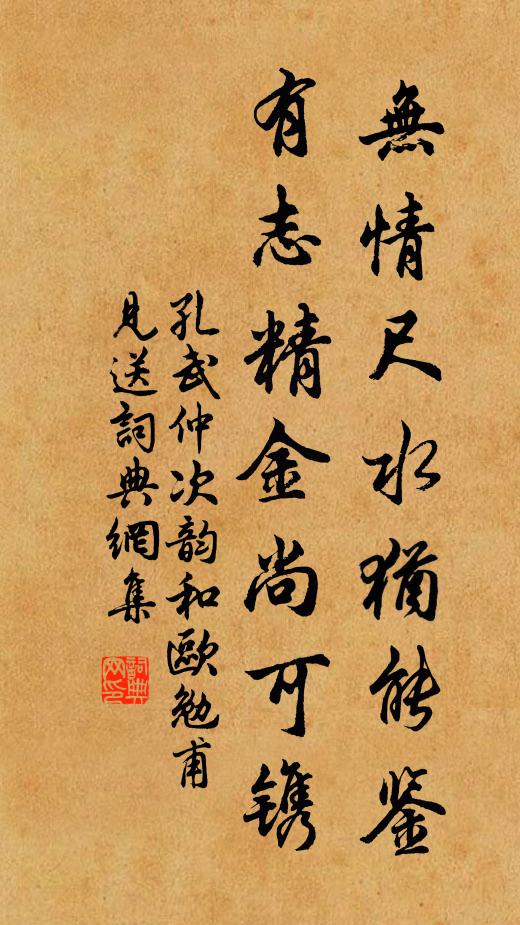 無情尺水猶能鉴
有志精金尚可鐫
孔武仲次韵和歐勉甫
見送詞典網集
詞典網印